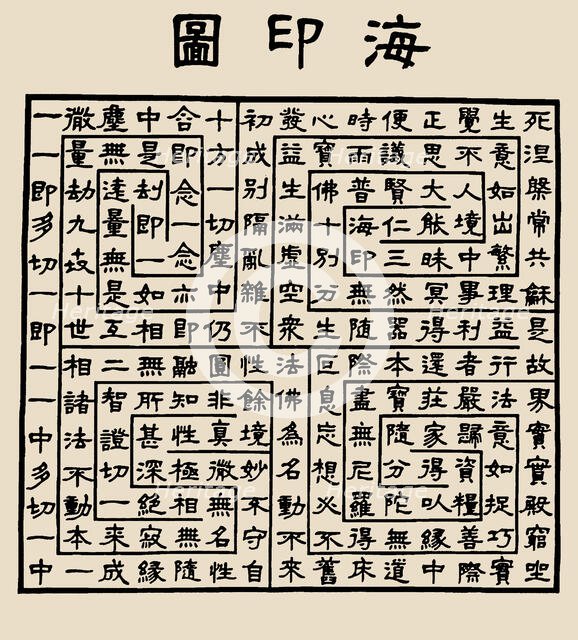 海印圖
死涅槃常共穌是故界實實殿窮坐
生意如出繁理益行法意如捉巧實
覺不人境中事利者嚴歸資糧善際
正思大能昧冥得還莊家得以緣中
便議賢仁三然器本寶隨分陀無道
時雨普海印無隨際盡無尼羅得床
心寶佛十別分生叵息忘想必不舊
發益生滿虛空眾法佛為名動不來
初成別隔亂雜不性餘境妙不守自
十方一切塵中仍圓非真微無名性
含即念一念亦即融知性極相無隨
中是劫即一如相無所甚深絕寂緣
塵無遠量無是互二智證切一來成
微量劫九世十世相諸法不動本一
一一即多切一即一一中多切一中